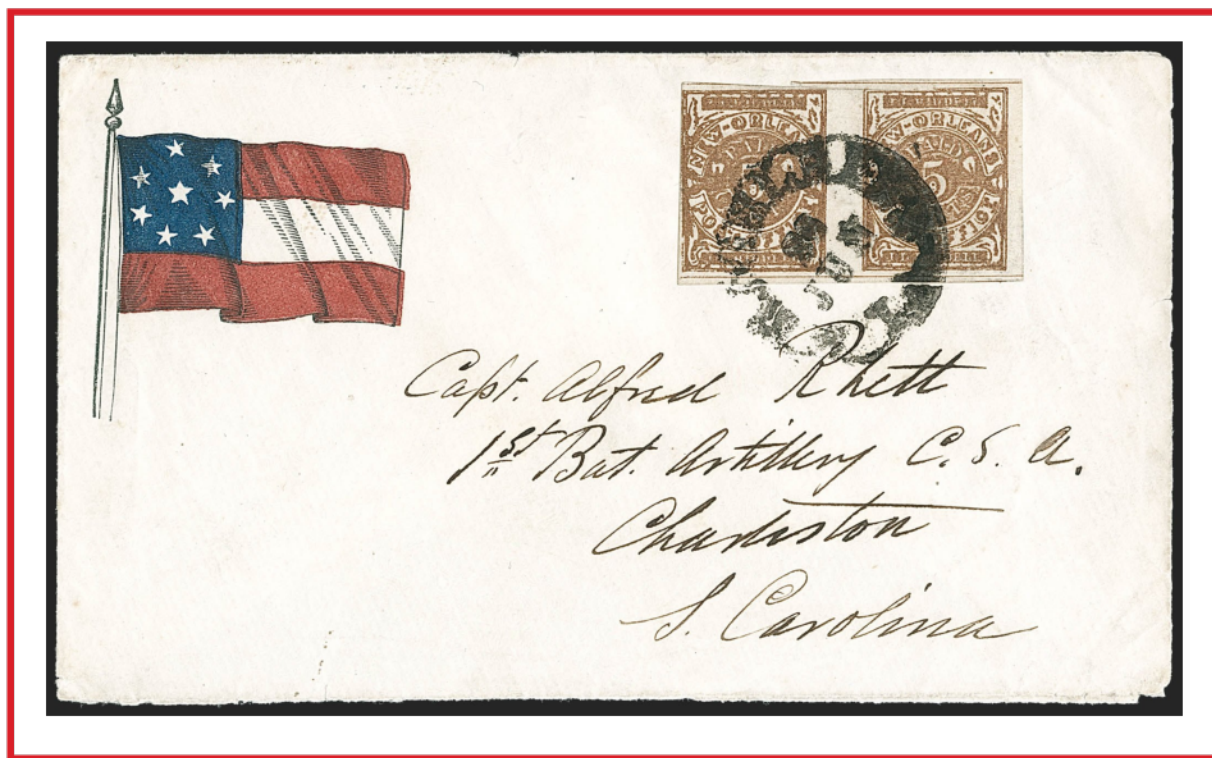 NEW-ORLEANS
PAID
POST OFFICE
W-ORLEANS
PAID
5
J.L. RIDDELL
Capt. Alfred Rhett
1st Bat. Artillery C. S. A.
Charleston
S. Carolina